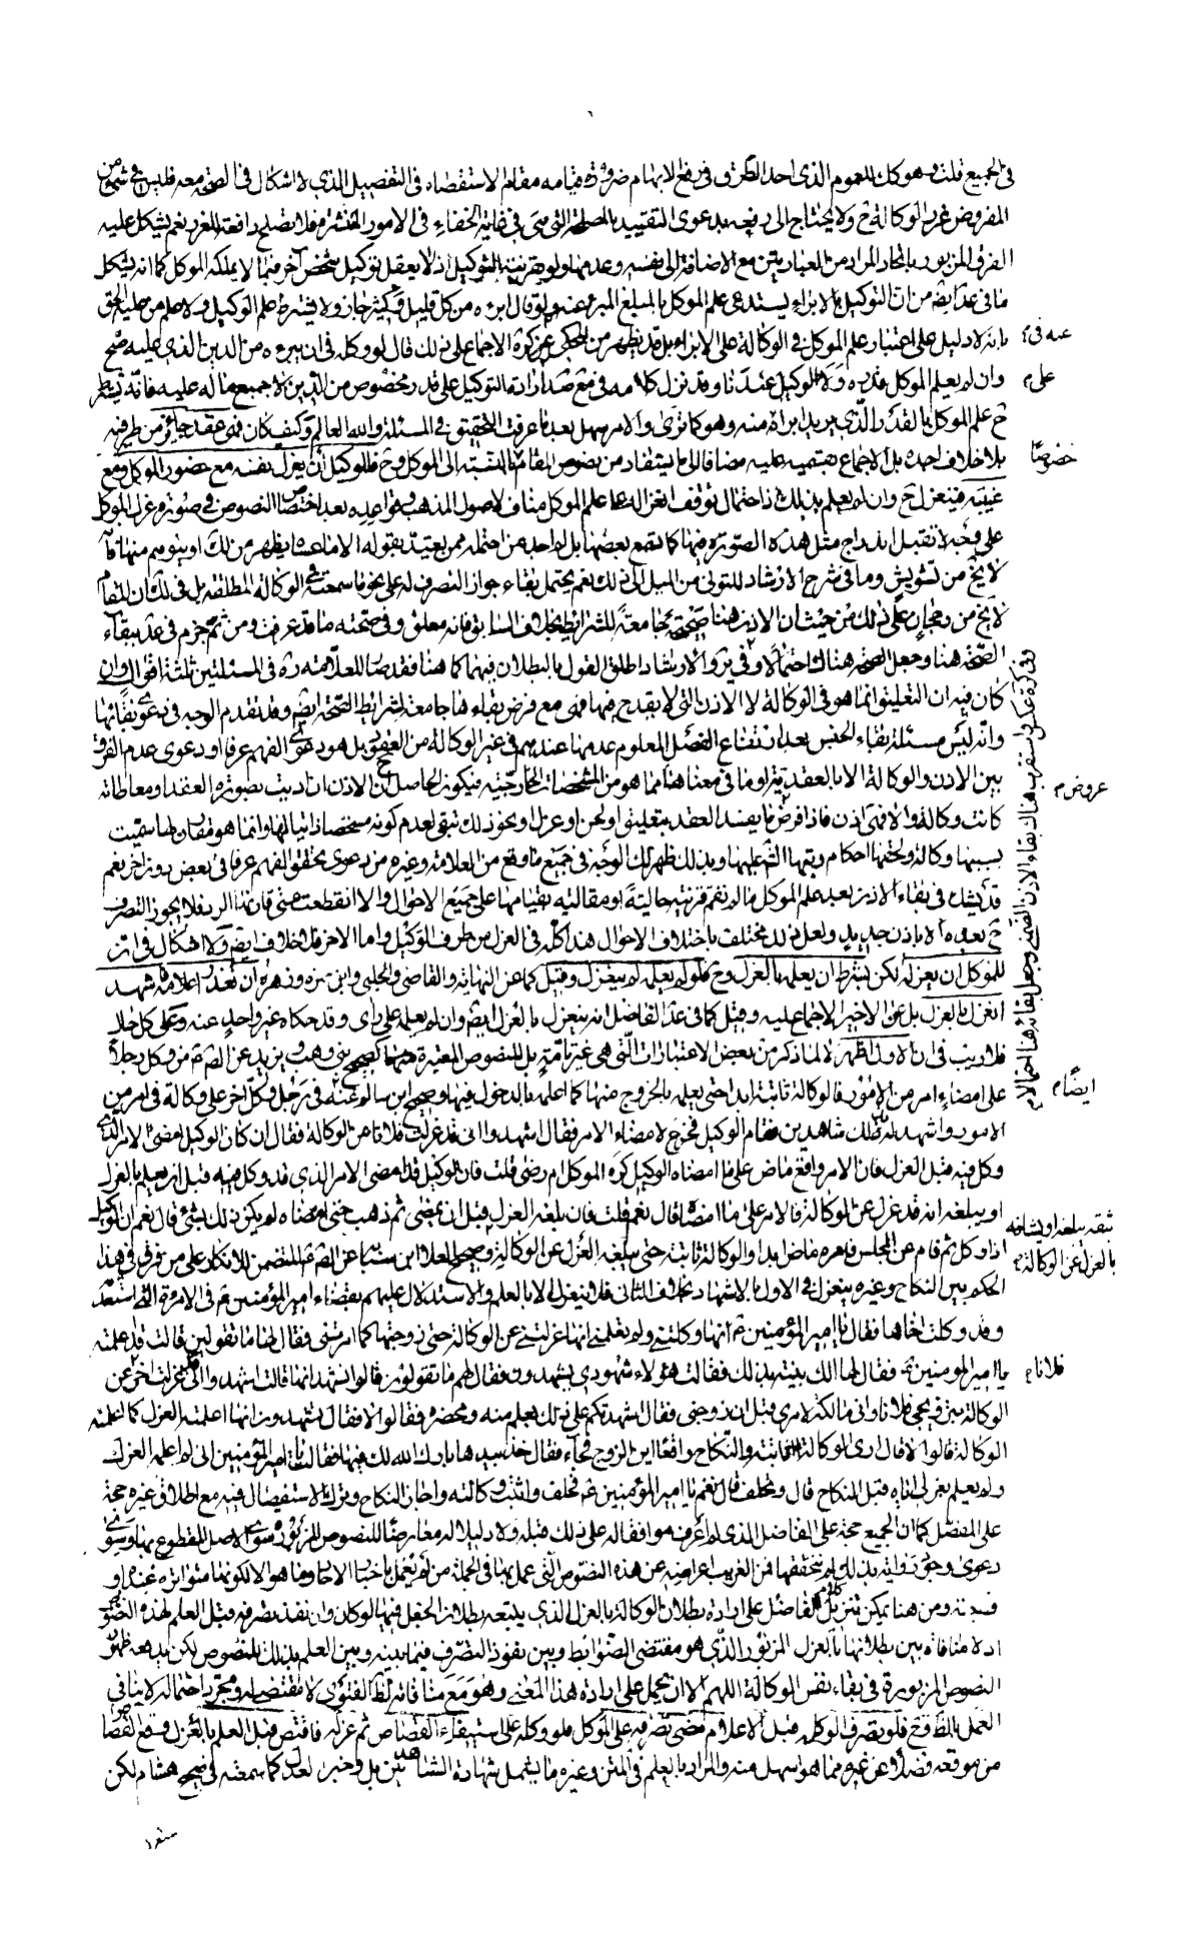 في الجميع قلت وهو كك للعموم الذي احد الطرق في رفع الابهام ضرورة قيامه مقام الاستقصاء في التفصيل الذي لا اشكال في الصحة معه فليس في شئ من
المفروض غرر الوكالة ح ولا يحتاج الى رفعه بدعوى التقييد بالمصلحة التي هي في غاية الخفاء في الامور المنتشرة فلا تصلح رافعة للغرر نعم يشكل عليه
الفرق المزبور باتحاد المراد من العبارتين مع الاضافة الى نفسه وعدمها ولو بقرينة التوكيل اذ لا يعقل توكيل شخص آخر فيما لا يملكه الموكل كما انه يشكل
ما في عد ايضا من ان التوكيل بالابراء يستدعي علم الموكل بالمبلغ المبرء عنه ولو قال ابرءه من كل قليل وكثير جاز ولا يشترط علم الوكيل ولا علم من عليه الحق
بانه لا دليل على اعتبار علم الموكل في الوكالة على الابراء بل قد يظهر من المحكي عن كرة الاجماع على ذلك قال لو وكله في ان يبرءه من الدين الذي عليه صح
عنه في
وان لم يعلم الموكل قدره ولا الوكيل عندنا وقد نزل كلامه في مع صد ارادة التوكيل على قدر مخصوص من الدين لا جميع ما له عليه فانه يشترط
على م
ح علم الموكل بالقدر الذي يريد ابراءه منه وهو كما ترى والامر سهل بعد ما عرفت التحقيق في المسئلة والله العالم وكيف كان فهو عقد جائز من طرفيه
بلا خلاف اجده بل الاجماع بقسميه عليه مضافا الى ما يستفاد من نصوص المقام بالنسبة الى الموكل وح فللوكيل ان يعزل نفسه مع حضور الموكل ومع
خصوصًا
غيبته فينعزل ح وان لم يعلم بذلك اذ احتمال توقف انعزاله على علم الموكل مناف لاصول المذهب وقواعده بعد اختصاص النصوص في صورة عزل الموكل
على وجه لا تقبل اندراج مثل هذه الصورة فيها كما يقع بعضها بل لم اجد من احتمله ممن يعتد بقوله الا ما عساه يظهر من ذلك او يتوهم منها
لا يخ من تشويش وما في شرح الارشاد للتولي من الميل الى ذلك نعم يحتمل بقاء جواز التصرف له على نحو ما سمعته في الوكالة المطلقة بل في ذلك ان المقام
لا يخ من رجحان على ذلك من حيث ان الاذن هنا صحيحة جامعة للشرائط بخلاف السابق فانه معلق وفي صحته ما قد عرفت ومن ثم جزم في عد ببقاء
الصحة هنا وجعل الصحة هناك احتمالا وفي ير والارشاد اطلق القول بالبطلان فيهما كما هنا فقد صار للعلامة ره في المسئلتين ثلثة اقوال وان
كان فيه ان التعليق انما هو في الوكالة لا الاذن التي لا يقدح فيها فهي مع فرض بقاءها جامعة لشرائط الصحة ايضا وقد تقدم الوجه في دعوى بقائها
وانه ليس مسئلة بقاء الجنس بعد ارتفاع الفصل المعلوم عدمها عندهم في غير الوكالة من العقود بل هو دعوى الفهم عرفا او دعوى عدم الفرق
بين الاذن والوكالة الا بالعقدية او ما في معناها مما هو من المشخصات الخارجية فيكون الحاصل ح ان الاذن ان اديت بصورة العقد او معاطاته
عروض م
كانت وكالة والا فهي اذن فاذا فرض ما يفسد العقد بتعليق او نحن او عزل او نحو ذلك تبقى لعدم كونه مشخصا ذاتيا لها وانما هو مقارن لها سميت
بسببها وكالة ولحقتها احكام رتبها الشرع عليها وبذلك ظهر لك الوجه في جميع ما وقع من العلامة وغيره من دعوى تحقق الفهم عرفا في بعض دون آخر نعم
قد يشك في بقاء الاذن بعد علم الموكل ما لم تقم قرينة حالية او مقالية بقيامها على جميع الاحوال والا انقطعت حتى قارنها الرد فلا يجوز التصرف
ح بعده الا باذن جديد ولعل ذلك مختلف باختلاف الاحوال هذا كله في العزل من طرف الوكيل واما الاخر فلا خلاف ايضا ولا اشكال في ان
للموكل ان يعزله لكن بشرط ان يعلمه بالعزل وح فلو لم يعلمه لم ينعزل وقيل كما عن النهاية والقاضي والحلبي وابني حمزة وزهرة ان تعذر اعلامه فاشهد
انعزل بالعزل بل عن الاخير الاجماع عليه وقيل كما في عد الفاضل انه ينعزل بالعزل ايضا وان لم يعلمه على راى وقد حكاه غير واحد عنه وعلى كل حال
فلا ريب في ان الاول اظهر لا لما ذكر من بعض الاعتبارات التي هي غير تامة بل للنصوص المعتبرة منها كصحيح بن وهب ويزيد عن الصم من وكل رجلا
على امضاء امر من الامور فالوكالة ثابتة ابدا حتى يعلمه بالخروج منها كما اعلمه بالدخول فيها وصحيح ابن سالم عنه في رجل وكل آخر على وكالة في امر من
ايضًا م
الامور واشهد له بذلك شاهدين فقام الوكيل فخرج لامضاء الامر فقال اشهدوا اني قد عزلت فلانا عن الوكالة فقال ان كان الوكيل امضى الامر الذي
وكل فيه قبل العزل فان الامر واقع ماض على ما امضاه الوكيل كره الموكل ام رضي قلت فان الوكيل قد امضى الامر الذي قد وكل فيه قبل ان يعلم بالعزل
او يبلغه انه قد عزل عن الوكالة فالامر على ما امضاه قال نعم قلت فان بلغه العزل قبل ان يمضي ثم ذهب حتى امضاه لم يكن ذلك بشئ قال نعم ان الوكيل
ثقه يبلغه او يشافه
اذا وكل ثم قام عن المجلس فامره ماض ابدا والوكالة ثابتة حتى يبلغه العزل عن الوكالة وصحيح العلا ابن سيابة عن الصم المتضمن للانكار على من فرق في هذا
بالعزل عن الوكالة م
الحكم بين النكاح وغيره ينعزل في الاول بالاشهاد بخلاف الثاني فلا ينعزل الا بالعلم والاستدلال عليهم بقضاء امير المؤمنين م في الامرئة التي استعدته
وقد وكلت اخاها فقال يا امير المؤمنين م انها وكلتني ولم تعلمني انها عزلتني عن الوكالة حتى زوجتها كما امرتني فقال لها ما تقولين قالت قد اعلمته
يا امير المؤمنين م فقال لها الك بينة بذلك فقالت هؤلاء شهودي يشهدون فقال لهم ما تقولون قالوا نشهد انها قالت اشهدوا اني قد عزلت اخي عن
فلانا م
الوكالة بتزويجي فلانا واني مالكة لامري قبل ان زوجني فقال اشهدتكم على ذلك بعلم منه ومحضره فقالوا لا فقال تشهدون انها اعلمته العزل كما اعلمته
الوكالة قالوا لا قال ارى الوكالة ثابتة والنكاح واقعا اين الزوج فجاء فقال خذ بيدها بارك الله لك فيها فقالت يا امير المؤمنين اني لم اعلمه العزل
ولم يعلم بعزلي اياه قبل النكاح قال وتحلف قال نعم يا امير المؤمنين م فحلف واثبت وكالته واجاز النكاح وترك الاستفصال فيه مع اطلاق غيره حجة
على المفصل كما ان الجميع حجة على الفاضل الذي لم اعرف موافقا له على ذلك قبله ولا دليلا له معارضا للنصوص المزبورة سوى الاصل المقطوع بها وسوى
دعوى وجود رواية بذلك لم نتحققها فمن الغريب اعراضه عن هذه النصوص التي عمل بها في الجملة من لم يعمل باخبار الاحاد وما هو الا لكونها متواترة عنده او
ومن هنا يمكن تنزيل كلام الفاضل على ارادة بطلان الوكالة بالعزل الذي يتبعه بطلان الجعل فيها لو كان وان نفذ تصرفه قبل العلم لهذه النصوص
اذ لا منافاة بين بطلانها بالعزل المزبور الذي هو مقتضى الضوابط وبين نفوذ التصرف فيما بينه وبين العلم بذلك للنصوص لكن يدفعه ظهور
النصوص المزبورة في بقاء نفس الوكالة اللهم الا ان تحمل على ارادة هذا المعنى وهو مع منافاته لظ الفتوى لا مقتضى له ومجرد احتماله لا ينافي
العمل بالظ وح فلو تصرف الوكيل قبل الاعلام مضى تصرفه على الموكل فلو وكله على استيفاء القصاص ثم عزله فاقتص قبل العلم بالعزل وقع القصاص
من موقعه فضلا عن غيره مما هو اسهل منه والمراد بالعلم في المتن وغيره ما يشمل شهادة الشاهدين بل وخبر العدل كما سمعته في صحيح هشام لكن
وفي كرة عكس واستقرب هناك بقاء الاذن الضمني وجعل بقائه هنا احتمالا م